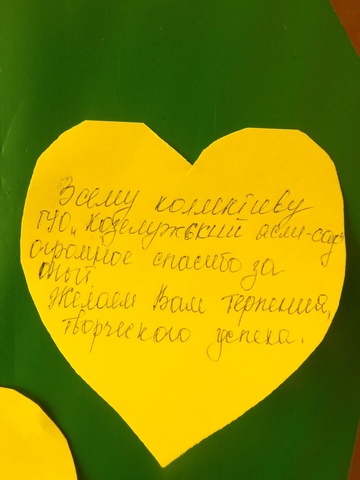 Всему коллективу
ГУО „Козелужский ясли-сад
огромное спасибо за
опыт.
Желаем Вам терпения,
творческого успеха.